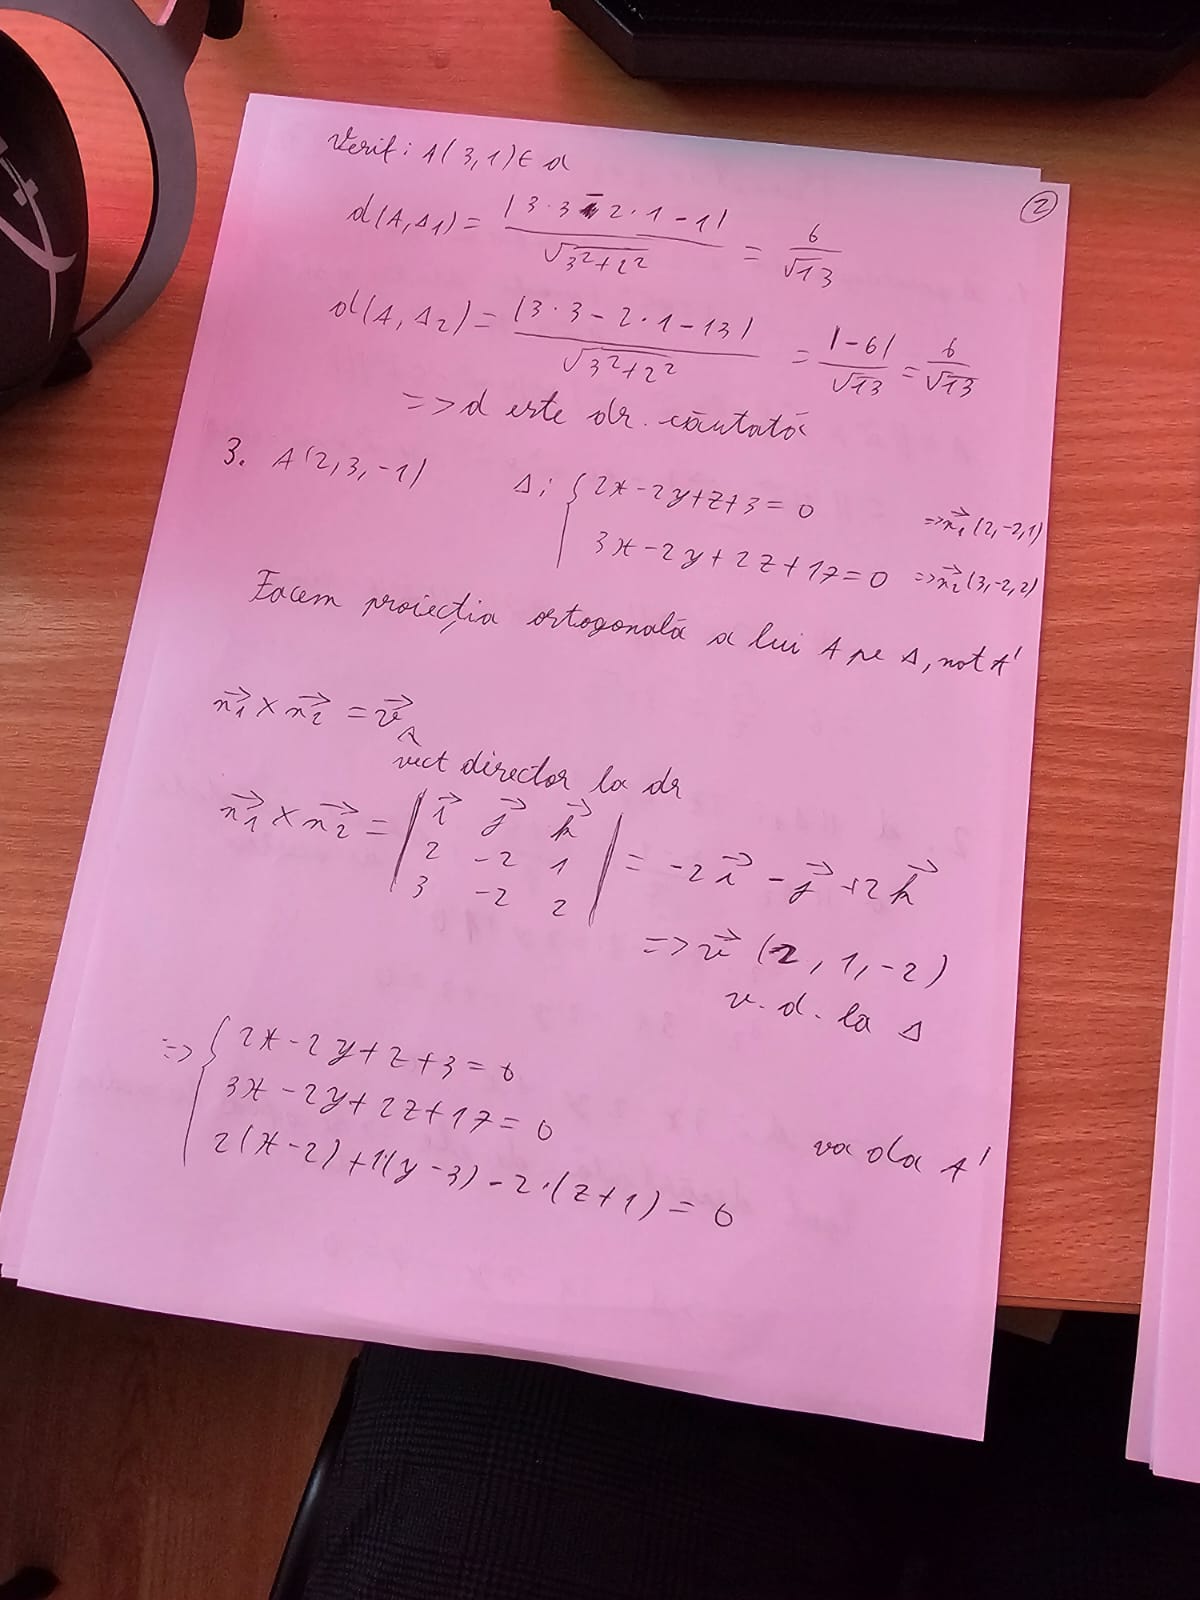 Verif: A(3,1)∈ d
2
d(A,Δ1) = |3·3 - 2·1 - 1| / √3²+2² = 6/√13
d(A,Δ2) = |3·3 - 2·1 - 13| / √3²+2² = |-6|/√13 = 6/√13
=> d este dr. căutată
3. A(2,3,-1) Δ: { 2x-2y+z+3=0 => n₁⃗ (2,-2,1)
3x-2y+2z+17=0 => n₂⃗ (3,-2,2)
Facem proiecția ortogonală a lui A pe Δ, not A'
n₁⃗ × n₂⃗ = v⃗
vect director la dr
n₁⃗ × n₂⃗ = | i⃗ j⃗ k⃗
2 -2 1
3 -2 2 | = -2i⃗ - j⃗ + 2k⃗
=> v⃗ (2, 1, -2)
v. d. la Δ
=> { 2x-2y+z+3=0
3x-2y+2z+17=0
va da A'
2(x-2)+1(y-3)-2·(z+1)=0